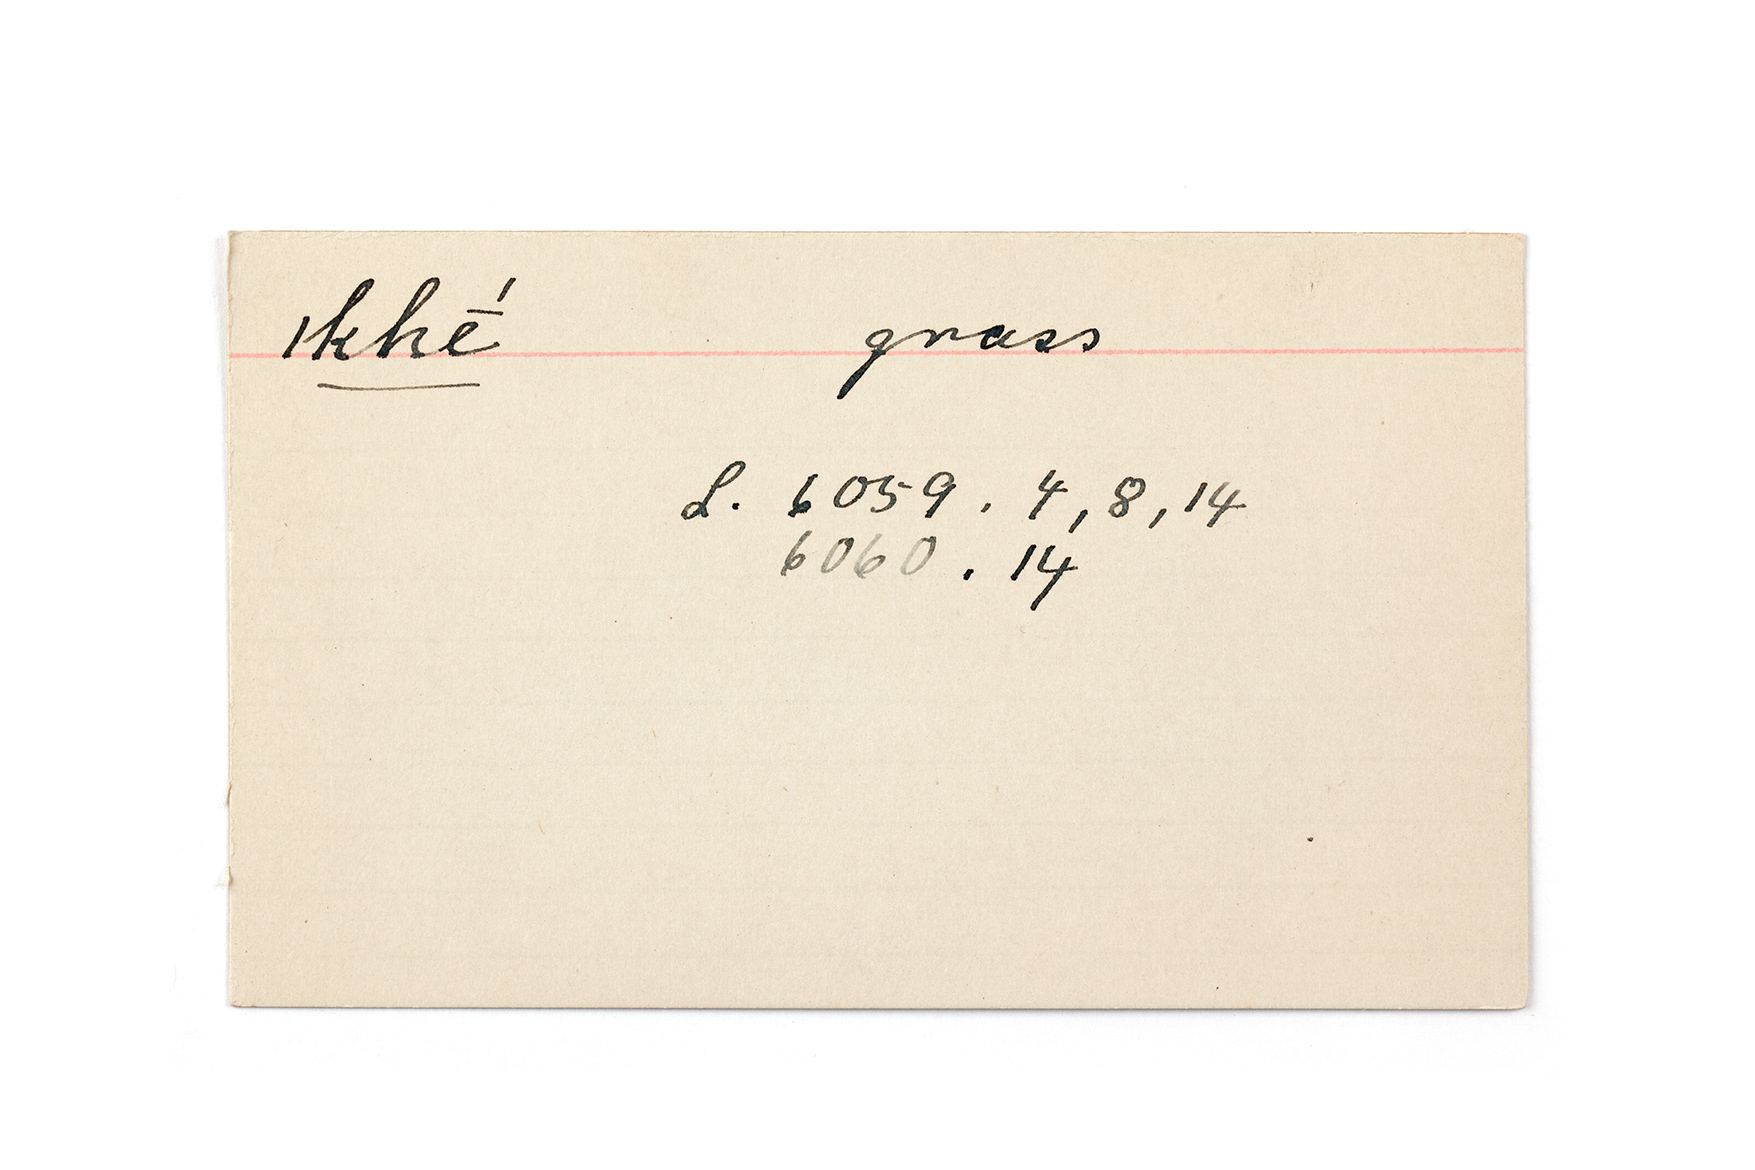 ıkhḗ grass
L. 6059. 4, 8, 14
6060. 14